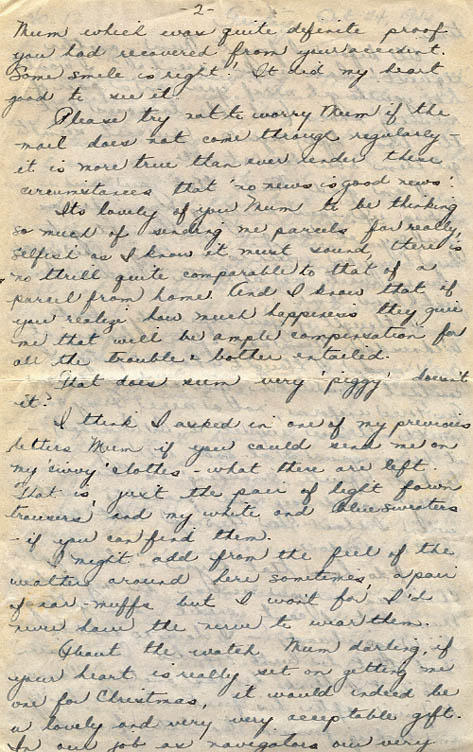 -2-
Mum which was quite definite proof
you had recovered from your accident.
Some smile is right! It did my heart
good to see it.
Please try not to worry Mum if the
mail does not come through regularly -
it is more true than ever under these
circumstances that 'no news is good news'.
Its lovely of you Mum to be thinking
so much of sending me parcels for really,
selfish as I know it must sound, there is
no thrill quite comparable to that of a
parcel from home. And I know that if
you realize how much happiness they give
me that will be ample compensation for
all the trouble & bother entailed.
That does seem very 'piggy' doesn't
it?
I think I asked in one of my previous
letters Mum if you could send me on
my 'civvy' clothes - what there are left.
That is, just the pair of light fawn
trousers and my white and blue sweaters
- if you can find them.
I might add from the feel of the
weather around here sometimes, a pair
of ear-muffs but I won't for I'd
never have the nerve to wear them.
About the watch Mum darling, if
your heart is really set on getting me
one for Christmas, it would indeed be
a lovely and very very acceptable gift.
In our job as navigators our very